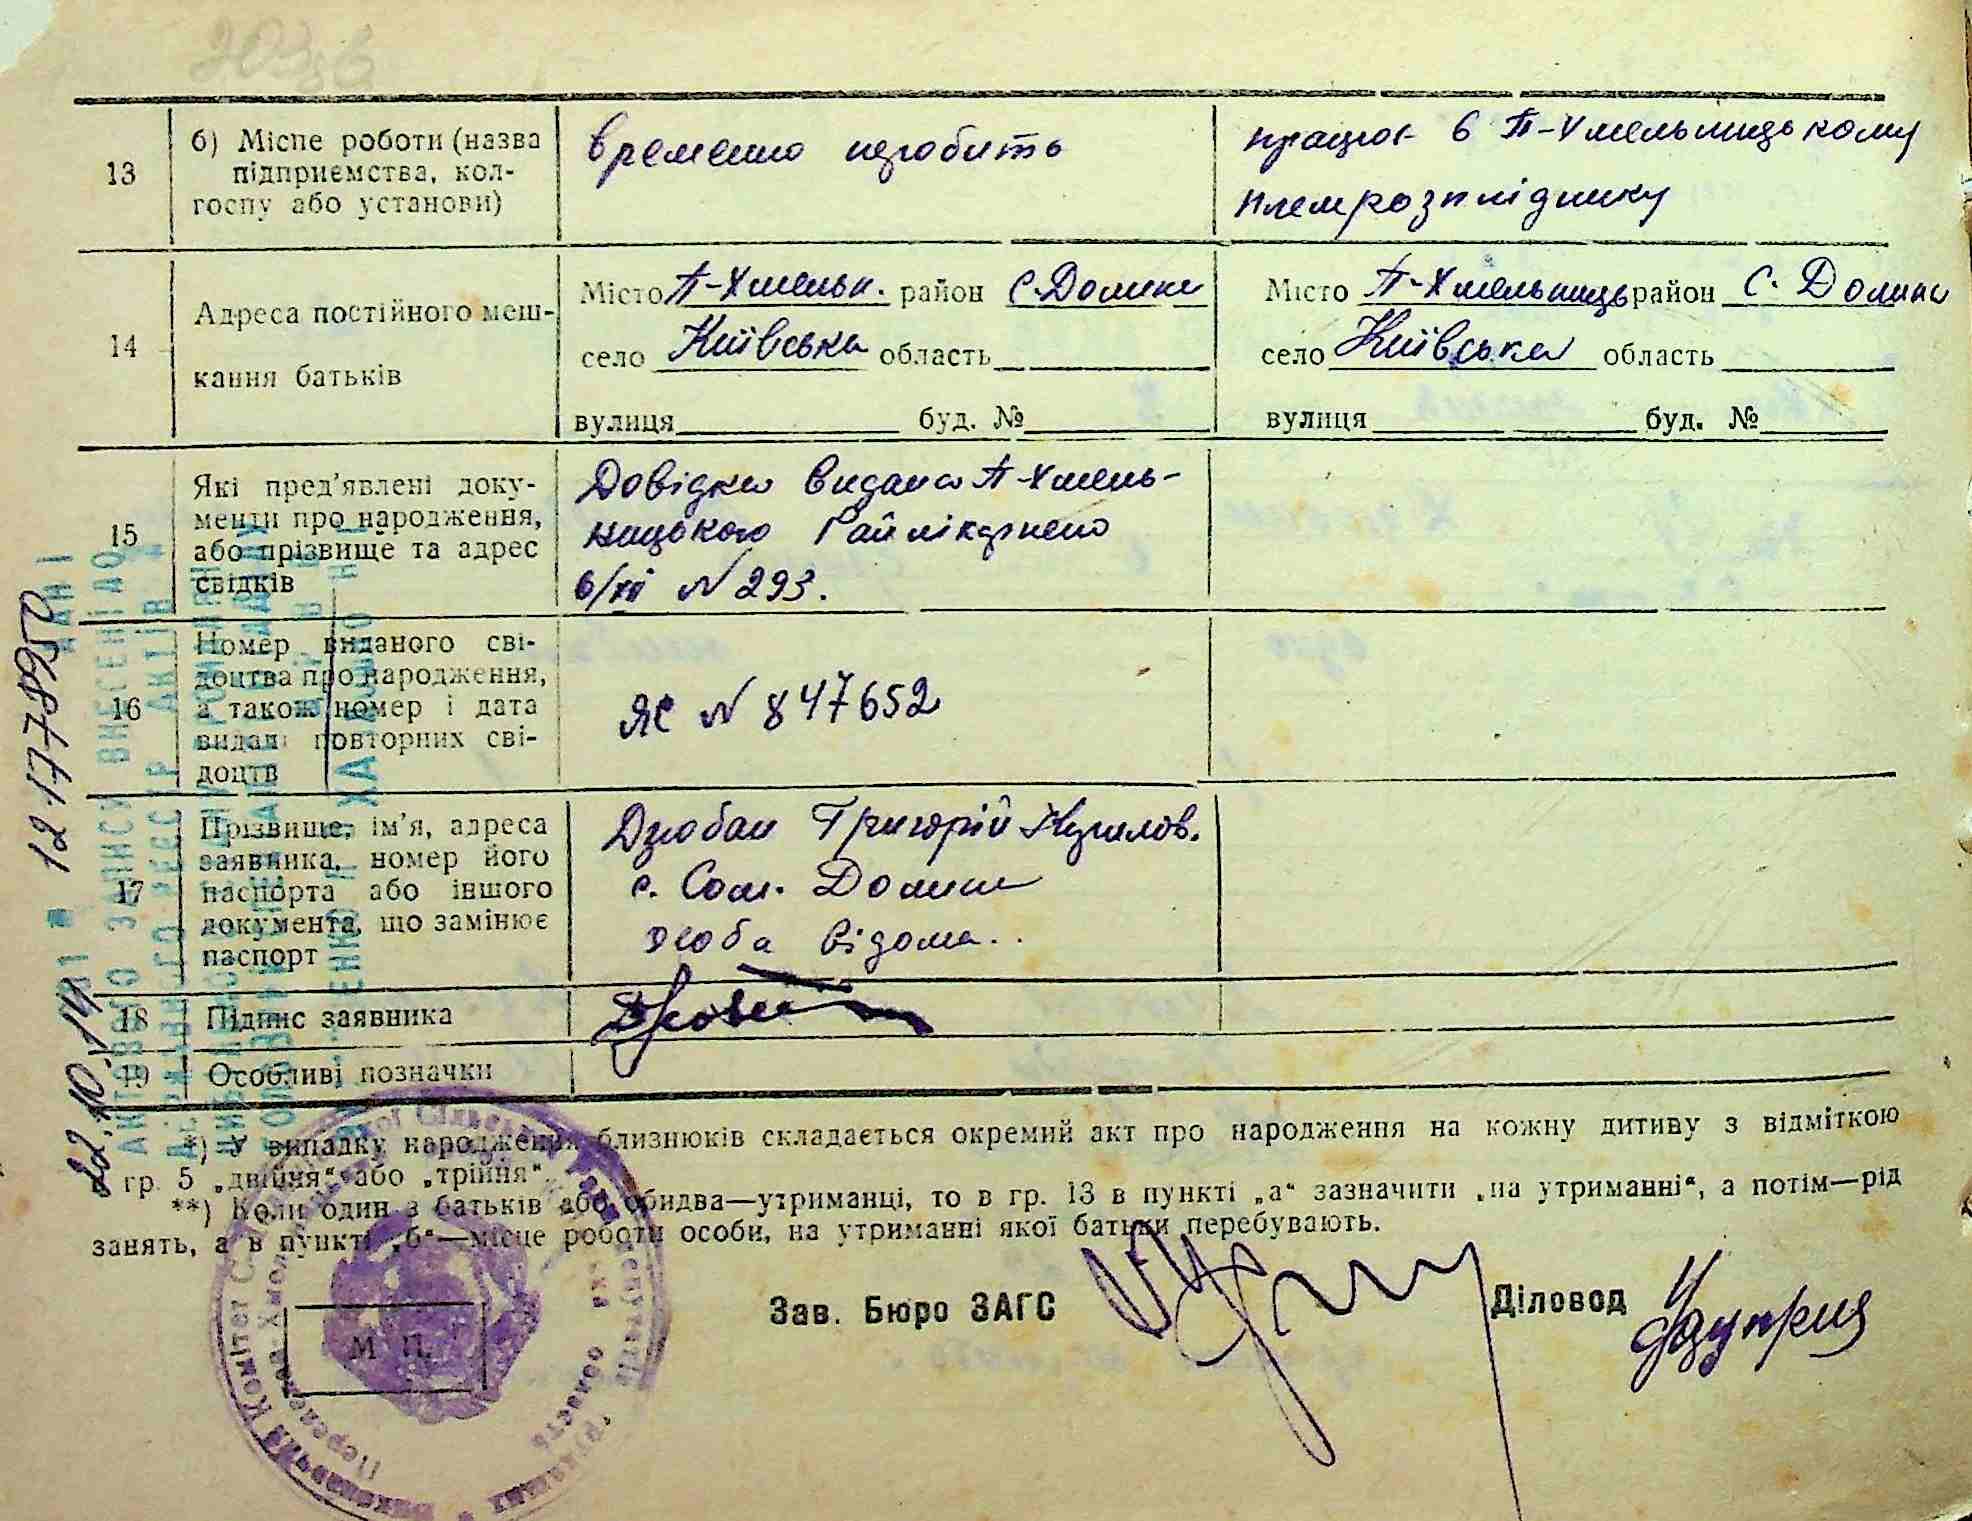 13
б) Місце роботи (назва
підприємства, кол-
госпу або установи)
временно неробить
працює в П-Хмельницькому
племрозпліднику
14
Адреса постійного меш-
кання батьків
Місто П-Хмельн. район С. Долина
село Київська область
вулиця буд. №
Місто П-Хмельниць район С. Долина
село Київська область
вулиця буд. №
15
Які пред'явлені доку-
менти про народження,
або прізвище та адрес
свідків
Довідка видана П-Хмель-
ницького Райлікарнею
6/XII N 293.
16
Номер виданого сві-
доцтва про народження,
а також номер і дата
видачі повторних сві-
доцтв
ЯС N 847652
17
Прізвище, ім'я, адреса
заявника, номер його
паспорта або іншого
документа, що замінює
паспорт
Дзюбан Григорій
с. Сом. Долина
особа відома..
18
Підпис заявника
19
Особливі позначки
*) У випадку народження близнюків складається окремий акт про народження на кожну дитину з відміткою
в гр. 5 „двійня“ або „трійня“.
**) Коли один з батьків або обидва—утриманці, то в гр. 13 в пункті „а“ зазначити „на утриманні“, а потім—рід
занять, а в пункті „б“—місце роботи особи, на утриманні якої батьки перебувають.
Зав. Бюро ЗАГС
Діловод
М. П.
22.10.14
121778950
ДАНІ
АКТОВОГО ЗАПИСУ ВНЕСЕНІ ДО
ДЕРЖАВНОГО РЕЄСТР АКТІВ